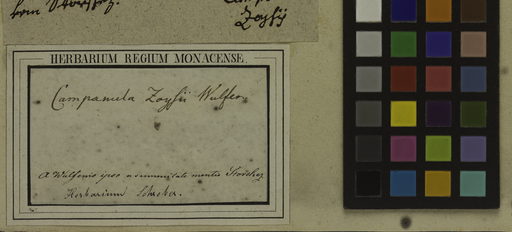 Zoysii
HERBARIUM REGIUM MONACENSE.
Campanula Zoysii Wulfen.
A Wulfenio ipso e summitate montis Storshez
Herbarium Schreber.